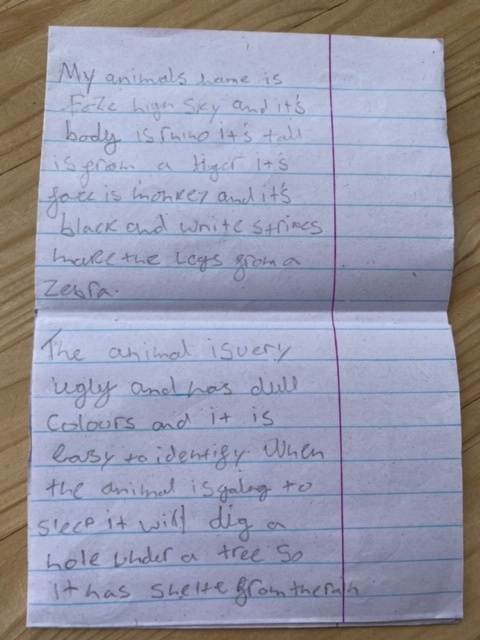 My animals name is
Foze high Sky and it's
body is rhino it's tail
is from a tiger it's
face is monkey and it's
black and white stripes
make the Legs from a
Zebra.
The animal is very
ugly and has dull
Colours and it is
easy to identify. When
the animal is going to
sleep it will dig a
hole under a tree so
it has shelte from the rain